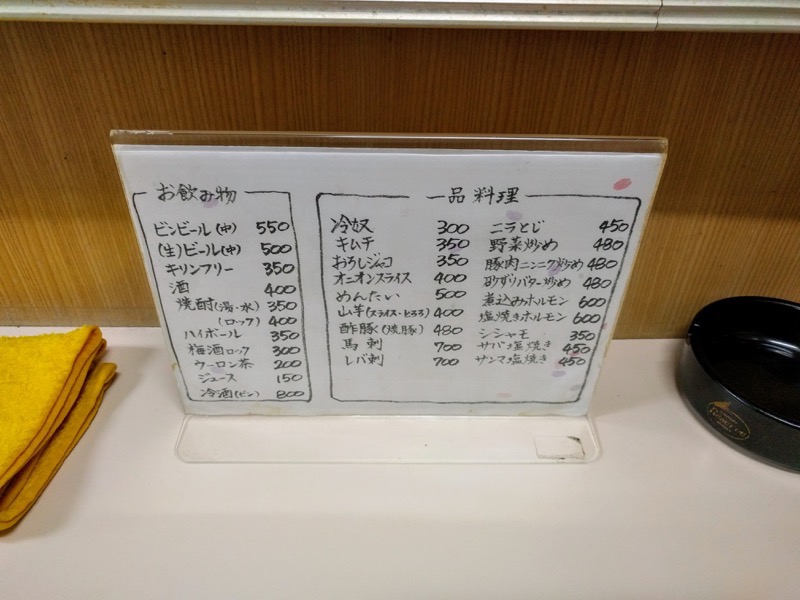 お飲み物
ビンビール(中) 550
(生)ビール(中) 500
キリンフリー 350
酒 400
焼酎(湯・水) 350
(ロック) 400
ハイボール 350
梅酒ロック 300
ウーロン茶 200
ジュース 150
冷酒(ビン) 800
一品料理
冷奴 300
キムチ 350
おろしジャコ 350
オニオンスライス 400
めんたい 500
山芋(スライス・とろろ) 400
酢豚(焼豚) 480
馬刺 700
レバ刺 700
ニラとじ 450
野菜炒め 480
豚肉ニンニク炒め 480
砂ずりバター炒め 480
煮込みホルモン 600
塩焼きホルモン 600
シシャモ 350
サバ塩焼き 450
サンマ塩焼き 450